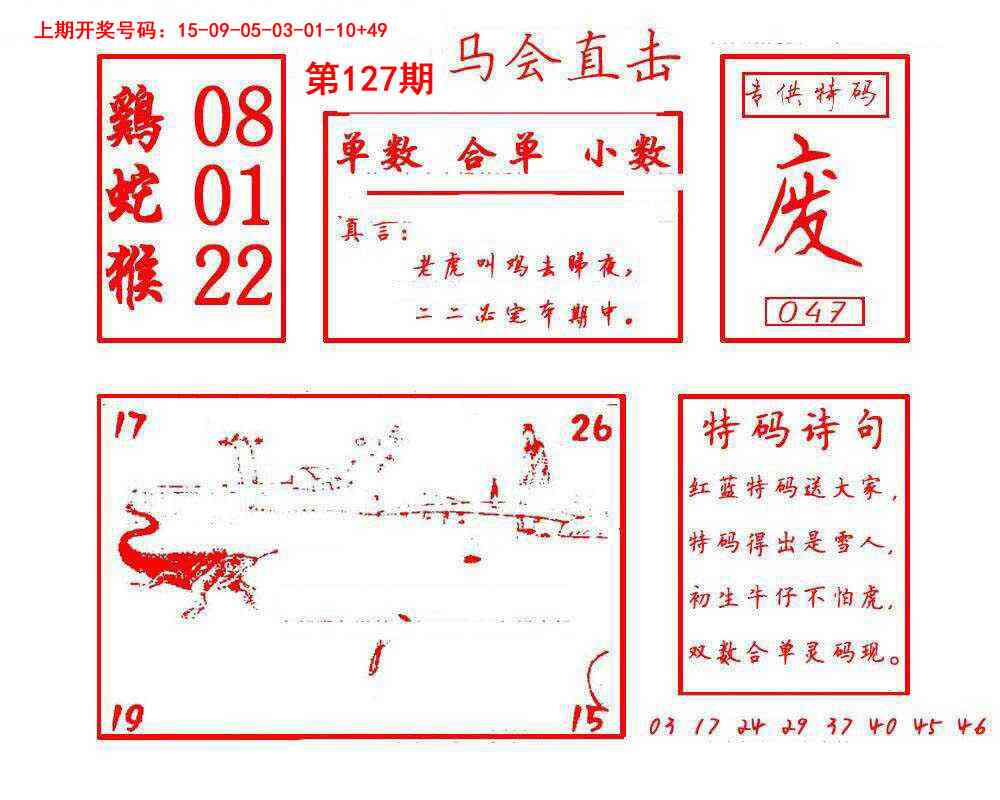 上期开奖号码：15-09-05-03-01-10+49
第127期
马会直击
鷄 08
蛇 01
猴 22
单数 合单 小数
真言：
老虎叫鸡去睇夜，
二二必定本期中。
专供特码
废
047
17
26
19
15
特码诗句
红蓝特码送大家，
特码得出是雪人，
初生牛仔不怕虎，
双数合单灵码现。
03 17 24 29 37 40 45 46